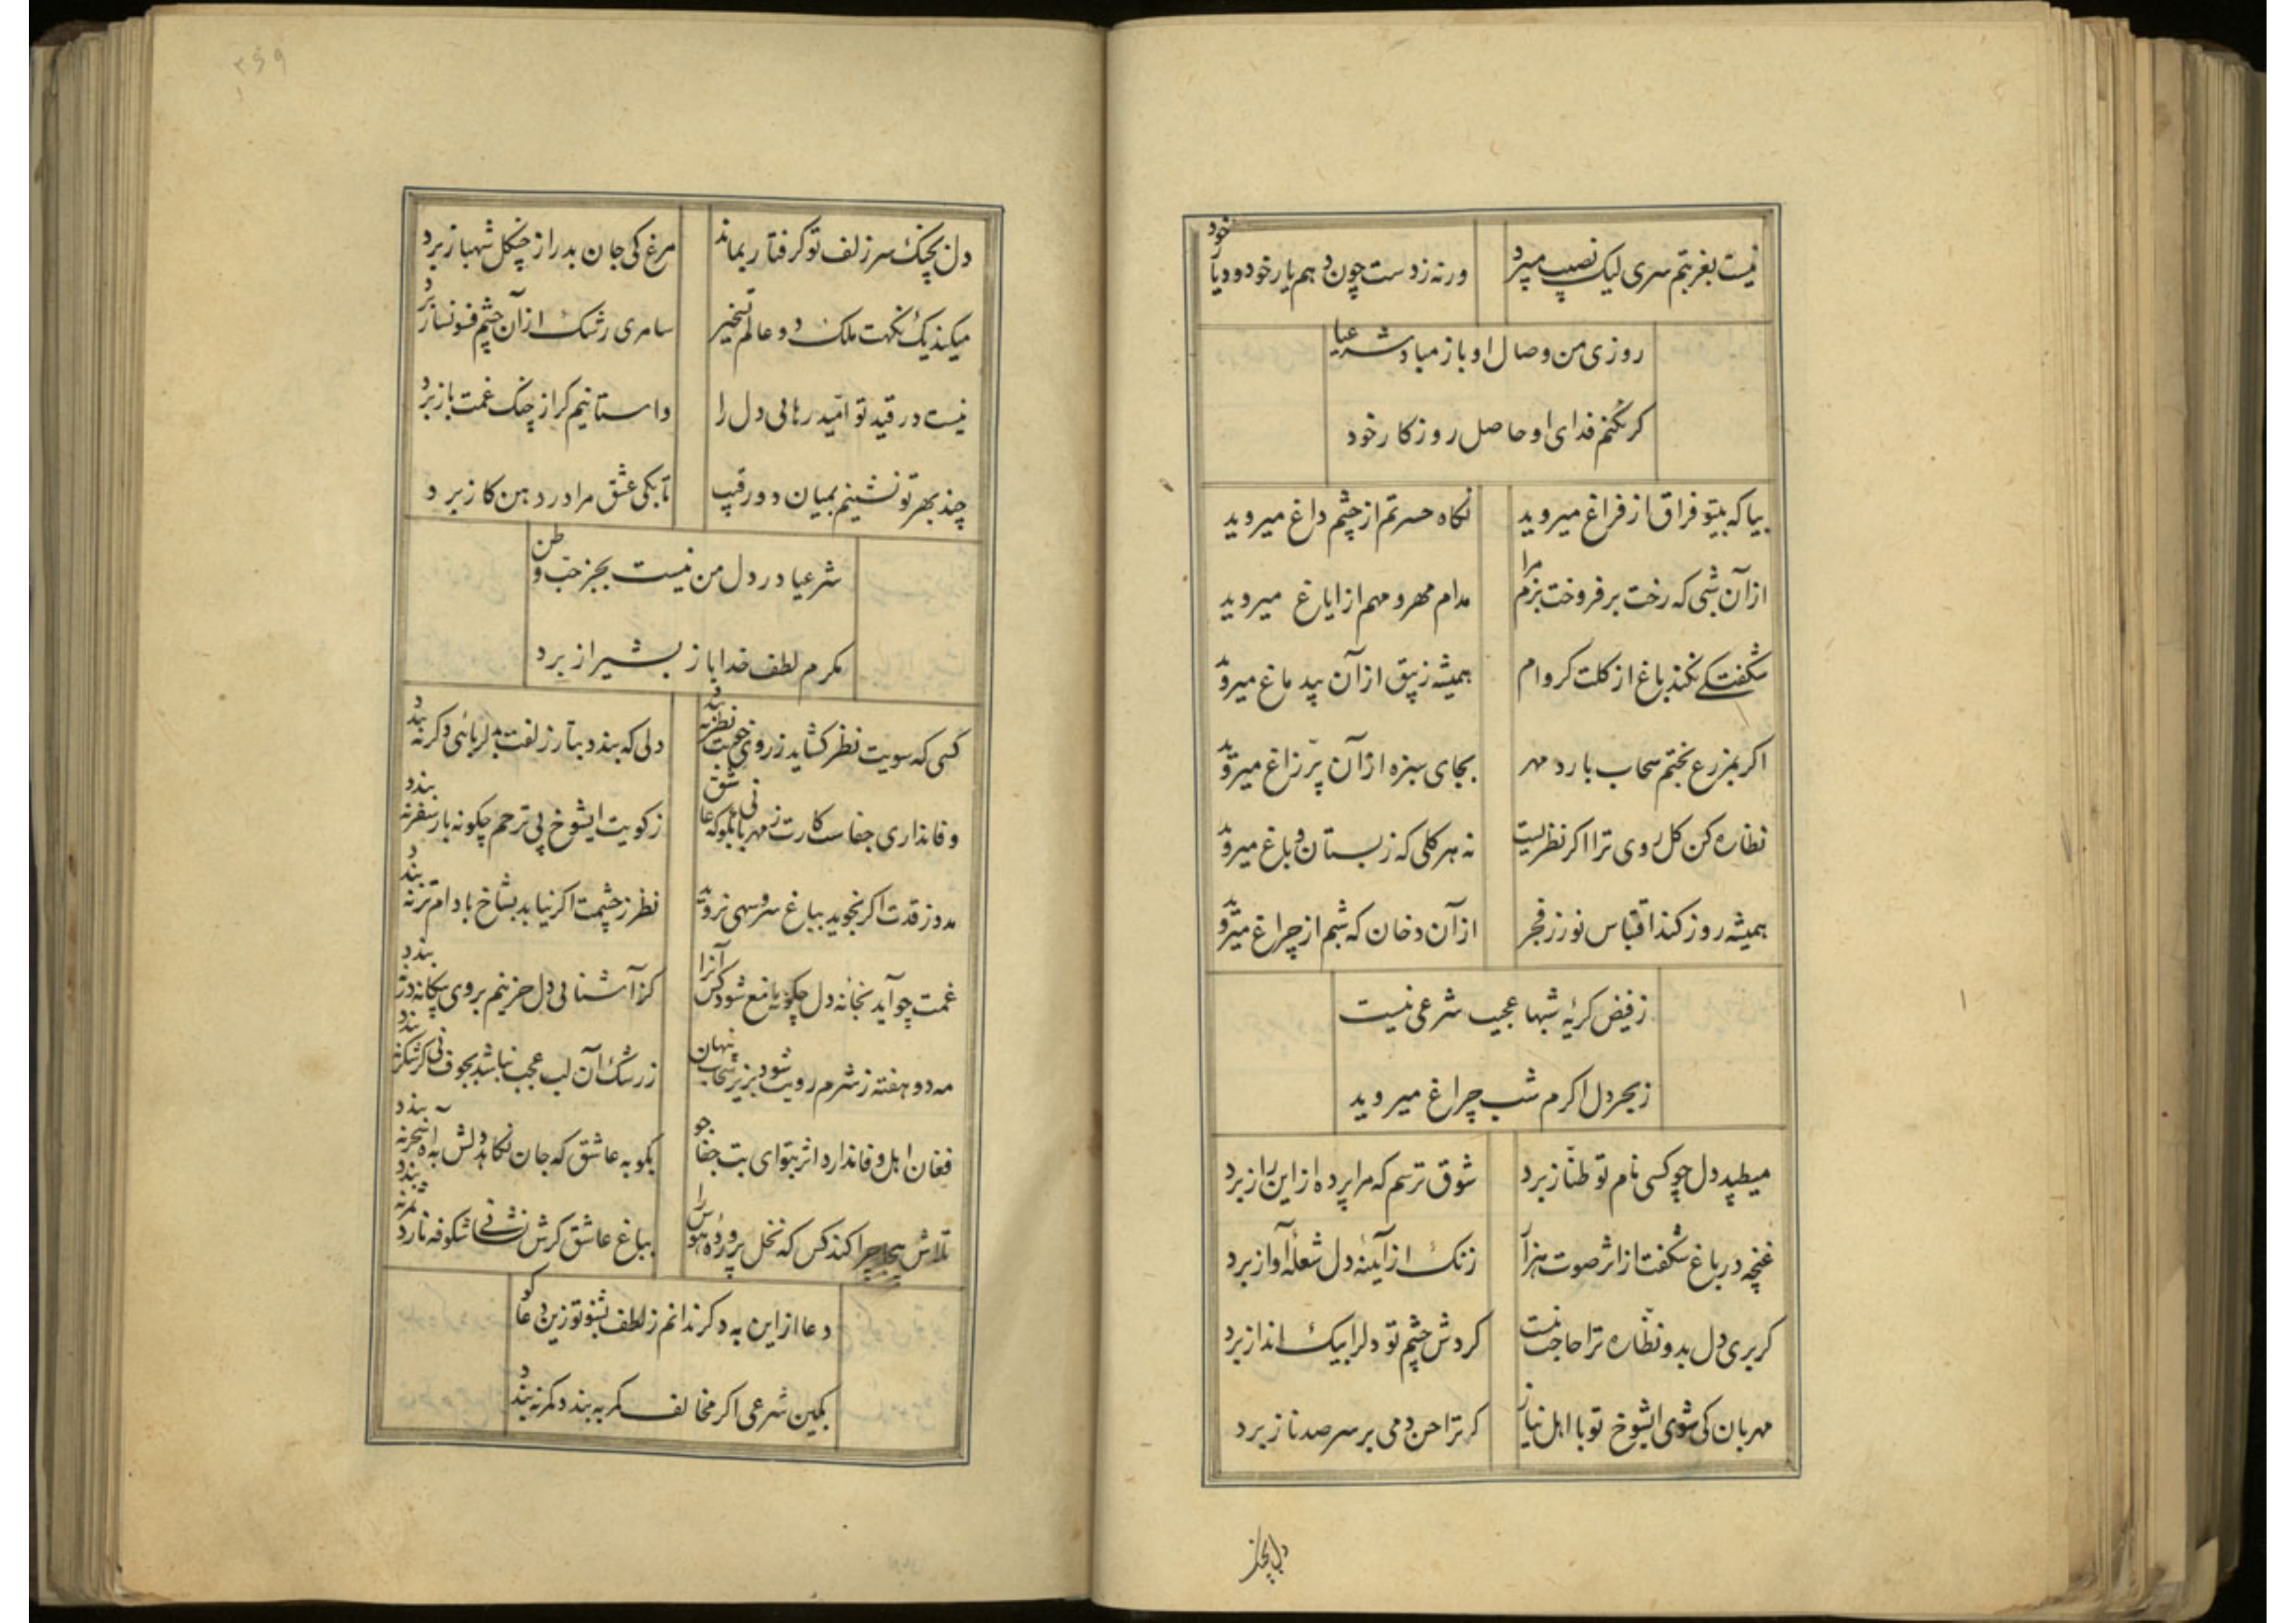 نیست بغربتم سری لیک نصیب میبرد ورنه زدست چون دهم یار خود و دیار خود
روزی من وصال او باز مباد شرعیا
کر نکنم فدای او حاصل روزکار خود
بیا که بیتو فراق از فراغ میروید نکاه حسرتم از چشم داغ میروید
از آن شبی که رخت برفروخت بزم مرا مدام مهر و مهم از ایاغ میروید
شکفتکی نکند باغ از کلت کر وام همیشه زیبق از آن بیدماغ میروید
اکر بمزرع بختم سحاب بارد مهر بجای سبزه از آن پرّ زاغ میروید
نظاره کن کل روی ترا اکر نظریست نه هر کلی که زبستان و باغ میروید
همیشه روز کند اقتباس نور ز فجر از آن دخان که شبم از چراغ میروید
زفیض کریهٔ شبها عجیب شرعی نیست
زبحر دل اکرم شب چراغ میروید
میطپد دل چو کسی نام تو طنّاز برد شوق ترسم که مرا پرده از این راز برد
غنچه در باغ شکفت از اثر صوت هزار زنک از آینهٔ دل شعلهٔ آواز برد
کر بری دل بدو نظّاره ترا حاجت نیست کردش چشم تو دلرا بیک انداز برد
مهربان کی شوی ایشوخ تو با اهل نیاز کر ترا حسن دمی بر سر صد ناز برد
دل بچنک
۳۶۹
دل بچنک سر زلف تو کرفتار بماند مرغ کی جان بدر از چنکل شهباز برد
میکند یک نکهت ملک دو عالم تسخیر سامری رشک از آن چشم فسونساز برد
نیست در قید تو امّید رهایی دل را داستانیم کر از چنک غمت باز برد
چند بهر تو نشینم بمیان دو رقیب تا بکی عشق مرا در دهن کاز برد
شرعیا در دل من نیست بجز حبّ وطن
مکرم لطف خدا باز بشیراز برد
کسی که سویت نظر کشاید زروی خوبت نظر نه بندد دلی که بندد بتار زلفت بدلربائی دکر نه بندد
وفا نداری جفاست کارت زمهربانی بکو که عاشق زکویت ایشوخ بی ترحم چکونه بار سفر نه بندد
مه دو ز قدت اکر نجوید بباغ سرو سهی نروید نظر زچشمت اکر نیابد بشاخ بادام تر نه بندد
غمت چو آید بخانهٔ دل چکونه مانع شود کس آنرا کز آشنایی دل حزینم بروی بیکانه در نه بندد
مه دو هفته زشرم رویت شود بزیر سحاب پنهان زرشک آن لب عجب نباشد بجوف نی کر شکر نه بندد
فغان اهل وفا ندارد اثر بتو ای بت جفاجو بکو به عاشق که جان نکاهد دلش به آه سحر نه بندد
تلاش بیجا چرا کند کس که نخل پروردهٔ هوس را بباغ عاشق کرش نشانی شکوفه نارد ثمر نه بندد
دعا از این به دکر ندانم زلطف بشنو تو زین دعاکو
بکین شرعی اکر مخالف کمر به بندد کمر نه بندد